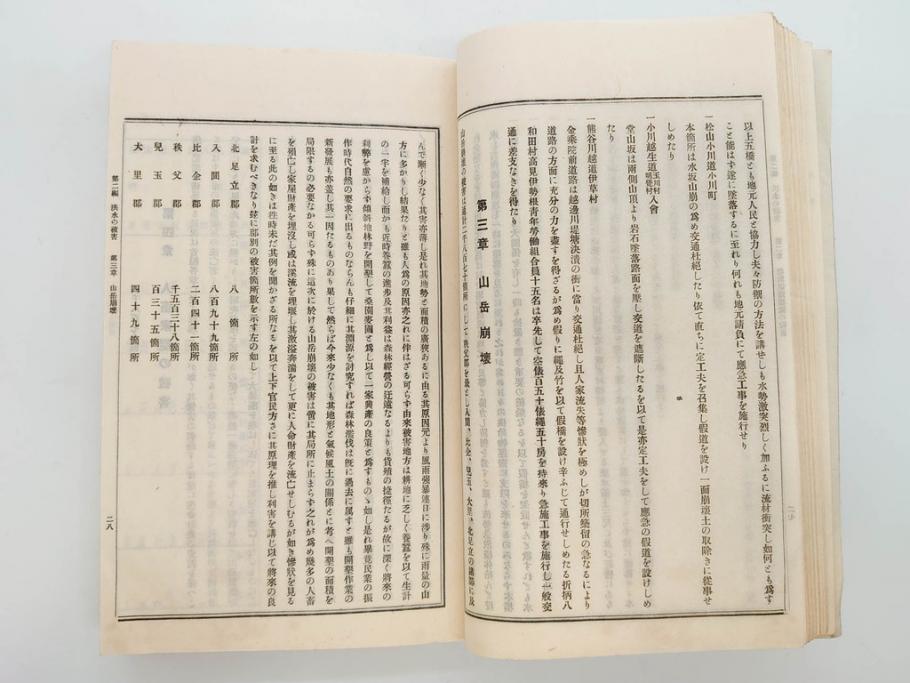 以上五橋とも地元人民と協力し夫々防禦の方法を講せしも水勢激突烈しく加ふるに流材衝突し如何とも爲す
こと能はす遂に墜落するに至れり何れも地元請負にて應急工事を施行せり
一松山小川道小川町
本箇所は水坂山崩の爲め交通杜絕したり依て直ちに定工夫を召集し假道を設け一面崩壞土の取除きに從事せ
しめたり
一小川越生道玉川村明覺村入會
堂山坂は兩側山頂より岩石墜落路面を壓し交道を遮斷したるを以て是亦定工夫をして應急の假道を設けしめ
たり
一熊谷川越道伊草村
金乘院前道路は越邊川堤塘決潰の衝に當り交通杜絕し且人家流失等慘狀を極めしが切所築留の急なるにより
道路の方面に充分の力を盡すを得ざるが爲め假りに繩及竹を以て假橋を設け辛ふじて通行せしめたる折柄八
和田村高見伊勢根靑年勞働組合員十五名は卒先して空俵百五十俵繩五十房を持來り急施工事を施行し一般交
通に差支なきを得たり
第三章 山岳崩壞
山岳崩壞の被害は總計二千八百七十箇所にして秩父郡を最とし入間、比企、兒玉、大里、北足立の諸郡に及
んで漸く少なく其害亦薄し是れ其地勢と面積の廣狹あるに由る其原因元より風雨强暴連日に涉り殊に雨量の山
方に多かりし結果たりと雖も人爲の原因亦之れに伴はざる可らず由來被害地方は耕地に乏しく養蠶を以て生計
の一半を補給し而かも近時養蠶の進步及其利益は森林經營の迂遠なるよりも貨殖の捷徑たるが故に深く將來の
利弊を慮からす傾斜地林野を開墾して桑園麥圃と爲し以て一家興產の良策と爲すものゝ如し是れ畢竟民業の振
作時代自然の要求に出るものならんも仔細に其淵源を討究すれば森林濫伐は旣に過去に屬すと雖も開墾作業の
新發展も亦蓋し其一因たるものあり果して然らば今來少なくも其地形と氣候風土の關係とに考へ開墾の面積を
局限するの必要なかる可らす殊に這次に於ける山岳崩壞の被害は啻に其局所に止まらず之れが爲め幾多の人畜
を殞亡し家屋財產を埋沒し或は溪流を埋堰し其激溢奔湍をして更に人命財產を流亡せしむるが如き慘狀を見る
に至る此の如きは往時未だ其例を聞かざる所なるを以て上下官民方さに其原理を推し利害を講じ以て將來の良
計を求むべきなり玆に郡別の被害箇所數を示す左の如し
北足立郡 八箇所
入間郡 八百九十九箇所
比企郡 二百四十一箇所
秩父郡 千五百三十八箇所
兒玉郡 百三十五箇所
大里郡 四十九箇所
第二編 洪水の被害 第三章 山岳崩壞 二八